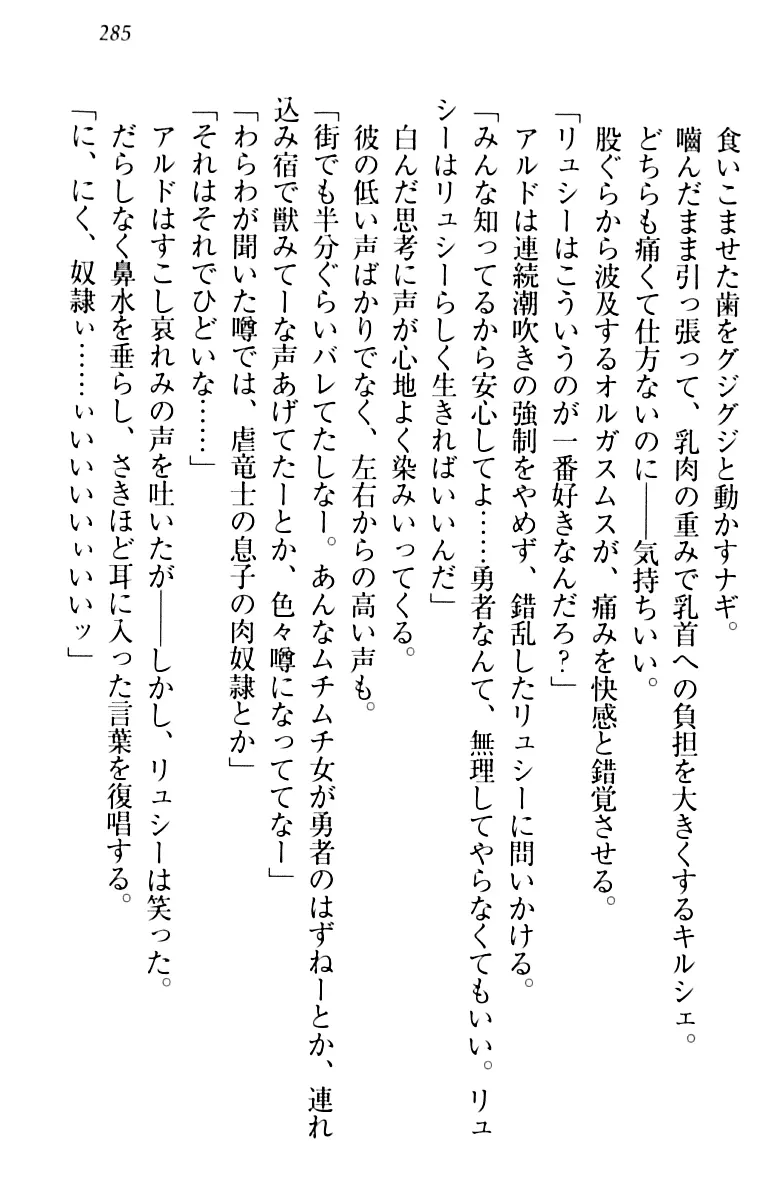 285
食いこませた歯をグジグジと動かすナギ。
嚙んだまま引っ張って、乳肉の重みで乳首への負担を大きくするキルシェ。
どちらも痛くて仕方ないのに――気持ちいい。
股ぐらから波及するオルガスムスが、痛みを快感と錯覚させる。
「リュシーはこういうのが一番好きなんだろ？」
アルドは連続潮吹きの強制をやめず、錯乱したリュシーに問いかける。
「みんな知ってるから安心してよ……勇者なんて、無理してやらなくてもいい。リュ
シーはリュシーらしく生きればいいんだ」
白んだ思考に声が心地よく染みいってくる。
彼の低い声ばかりでなく、左右からの高い声も。
「街でも半分ぐらいバレてたしなー。あんなムチムチ女が勇者のはずねーとか、連れ
込み宿で獣みてーな声あげてたーとか、色々噂になっててなー」
「わらわが聞いた噂では、虐竜士の息子の肉奴隷とか」
「それはそれでひどいな……」
アルドはすこし哀れみの声を吐いたが――しかし、リュシーは笑った。
だらしなく鼻水を垂らし、さきほど耳に入った言葉を復唱する。
「に、にく、奴隷ぃ……ぃいいいいぃいいッ」